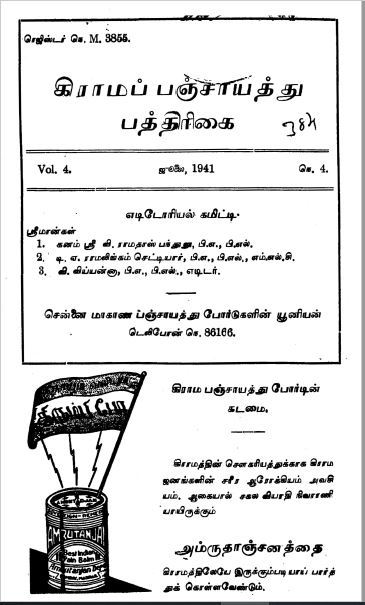 ரெஜிஸ்டர் நெ. M. 3855.
கிராமப் பஞ்சாயத்து
பத்திரிகை
Vol. 4. ஜூலை, 1941 நெ. 4.
எடிடோரியல் கமிட்டி.
ஸ்ரீமான்கள்
1. கனம் ஸ்ரீ வி. ராமதாஸ் பந்துலு, பி.ஏ., பி.எல்.
2. டி. ஏ. ராமலிங்கம் செட்டியார், பி.ஏ., பி.எல்., எம்.எல்.சி.
3. வி. விய்யன்னா, பி.ஏ., பி.எல்., எடிடர்.
சென்னை மாகாண பஞ்சாயத்து போர்டுகளின் யூனியன்
டெலிபோன் நெ. 86166.
கிராம பஞ்சாயத்து போர்டின்
கடமை.
கிராமத்தின் சௌகரியத்துக்காக கிராம
ஜனங்களின் சரீர ஆரோக்கியம் அவசி
யம். ஆகையால் சகல வியாதி நிவாரணி
யாயிருக்கும்
அம்ருதாஞ்சனத்தை
கிராமத்திலேயே இருக்கும்படியாய் பார்த்
துக் கொள்ளவேண்டும்.
AMRUTANJAN
Best Indian
Pain Balm
Amrutanjan Depot